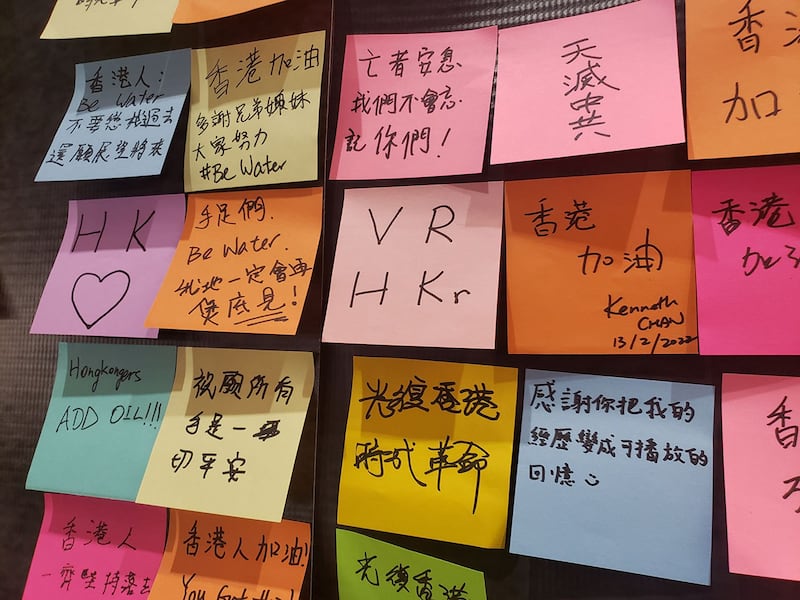 香港人：
Be Water
不要您
還願展望將來
香港加油
多謝兄弟姊妹
大家努力
#Be Water
亡者安息
我們不會忘
記你們！
天滅中共
香
加
H K
手足們.
Be Water.
我地一定會再
煲底見！
V R
H Kr
香港
加油
Kenneth
CHAN
13/2/2022
香港
加
Hongkongers
ADD OIL!!!
祝願所有
手足一
切平安
光復香港
時代革命
感謝你把我的
經歷變成可播放的
回憶
香
香港人
一齊堅持落去
香港人加油!
You Got
光復香港